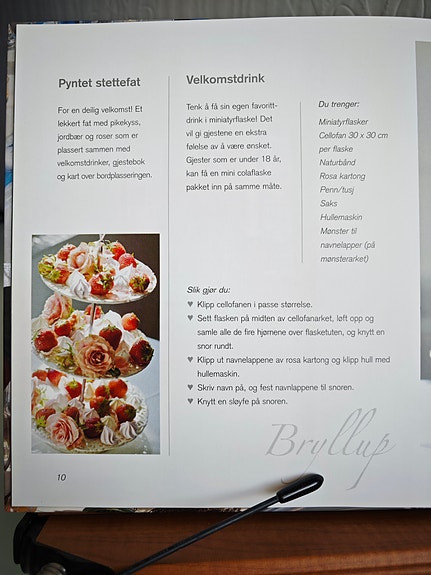 Pyntet stettefat
For en deilig velkomst! Et
lekkert fat med pikekyss,
jordbær og roser som er
plassert sammen med
velkomstdrinker, gjestebok
og kart over bordplasseringen.
Velkomstdrink
Tenk å få sin egen favoritt-
drink i miniatyrflaske! Det
vil gi gjestene en ekstra
følelse av å være ønsket.
Gjester som er under 18 år,
kan få en mini colaflaske
pakket inn på samme måte.
Du trenger:
Miniatyrflasker
Cellofan 30 x 30 cm
per flaske
Naturbånd
Rosa kartong
Penn/tusj
Saks
Hullemaskin
Mønster til
navnelapper (på
mønsterarket)
Slik gjør du:
♥ Klipp cellofanen i passe størrelse.
♥ Sett flasken på midten av cellofanarket, løft opp og
samle alle de fire hjørnene over flasketuten, og knytt en
snor rundt.
♥ Klipp ut navnelappene av rosa kartong og klipp hull med
hullemaskin.
♥ Skriv navn på, og fest navnlappene til snoren.
♥ Knytt en sløyfe på snoren.
Bryllup
10